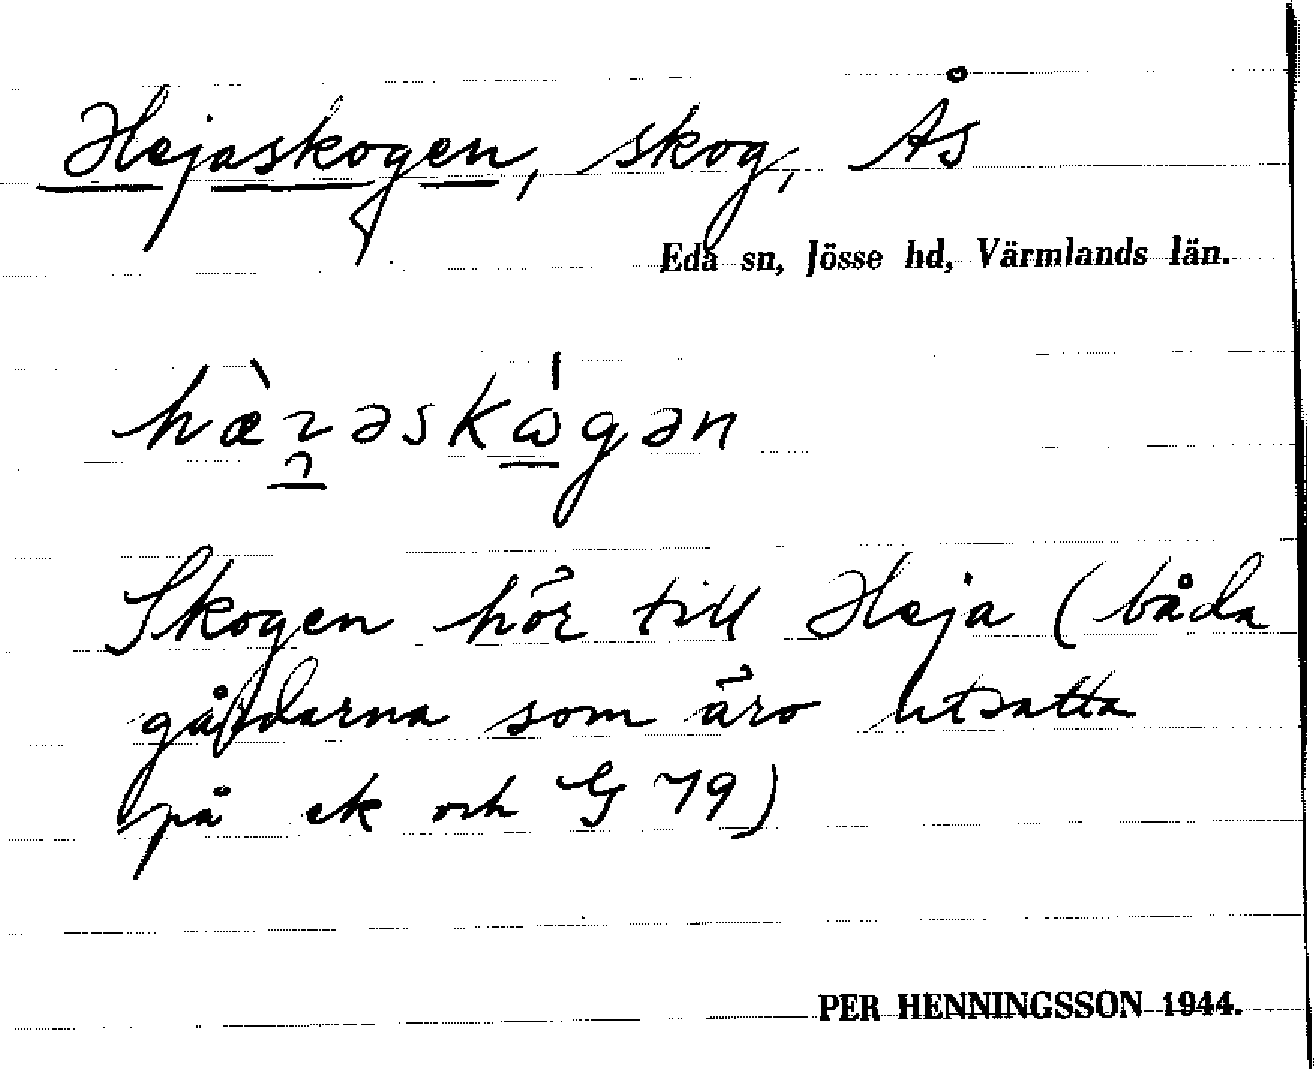 Hejaskogen, skog, Ås
Eda sn, Jösse hd, Värmlands län.
hæ̀ɿəskɷ́gən
Skogen hör till Heja (båda
gårdarna som äro utsatta
på ek och G 79)
PER HENNINGSSON 1944.